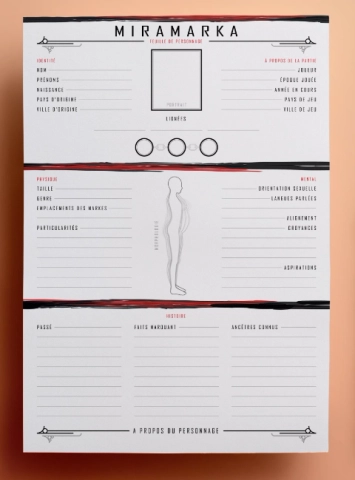 MIRAMARKA
FEUILLE DE PERSONNAGE
IDENTITÉ
NOM
PRÉNOMS
NAISSANCE
PAYS D'ORIGINE
VILLE D'ORIGINE
PORTRAIT
LIGNÉES
À PROPOS DE LA PARTIE
JOUEUR
ÉPOQUE JOUÉE
ANNÉE EN COURS
PAYS DE JEU
VILLE DE JEU
PHYSIQUE
TAILLE
GENRE
EMPLACEMENTS DES MARQUES
PARTICULARITÉS
MENTAL
ORIENTATION SEXUELLE
LANGUES PARLÉES
ALIGNEMENT
CROYANCES
ASPIRATIONS
HISTOIRE
PASSÉ
FAITS MARQUANT
ANCÊTRES CONNUS
A PROPOS DU PERSONNAGE